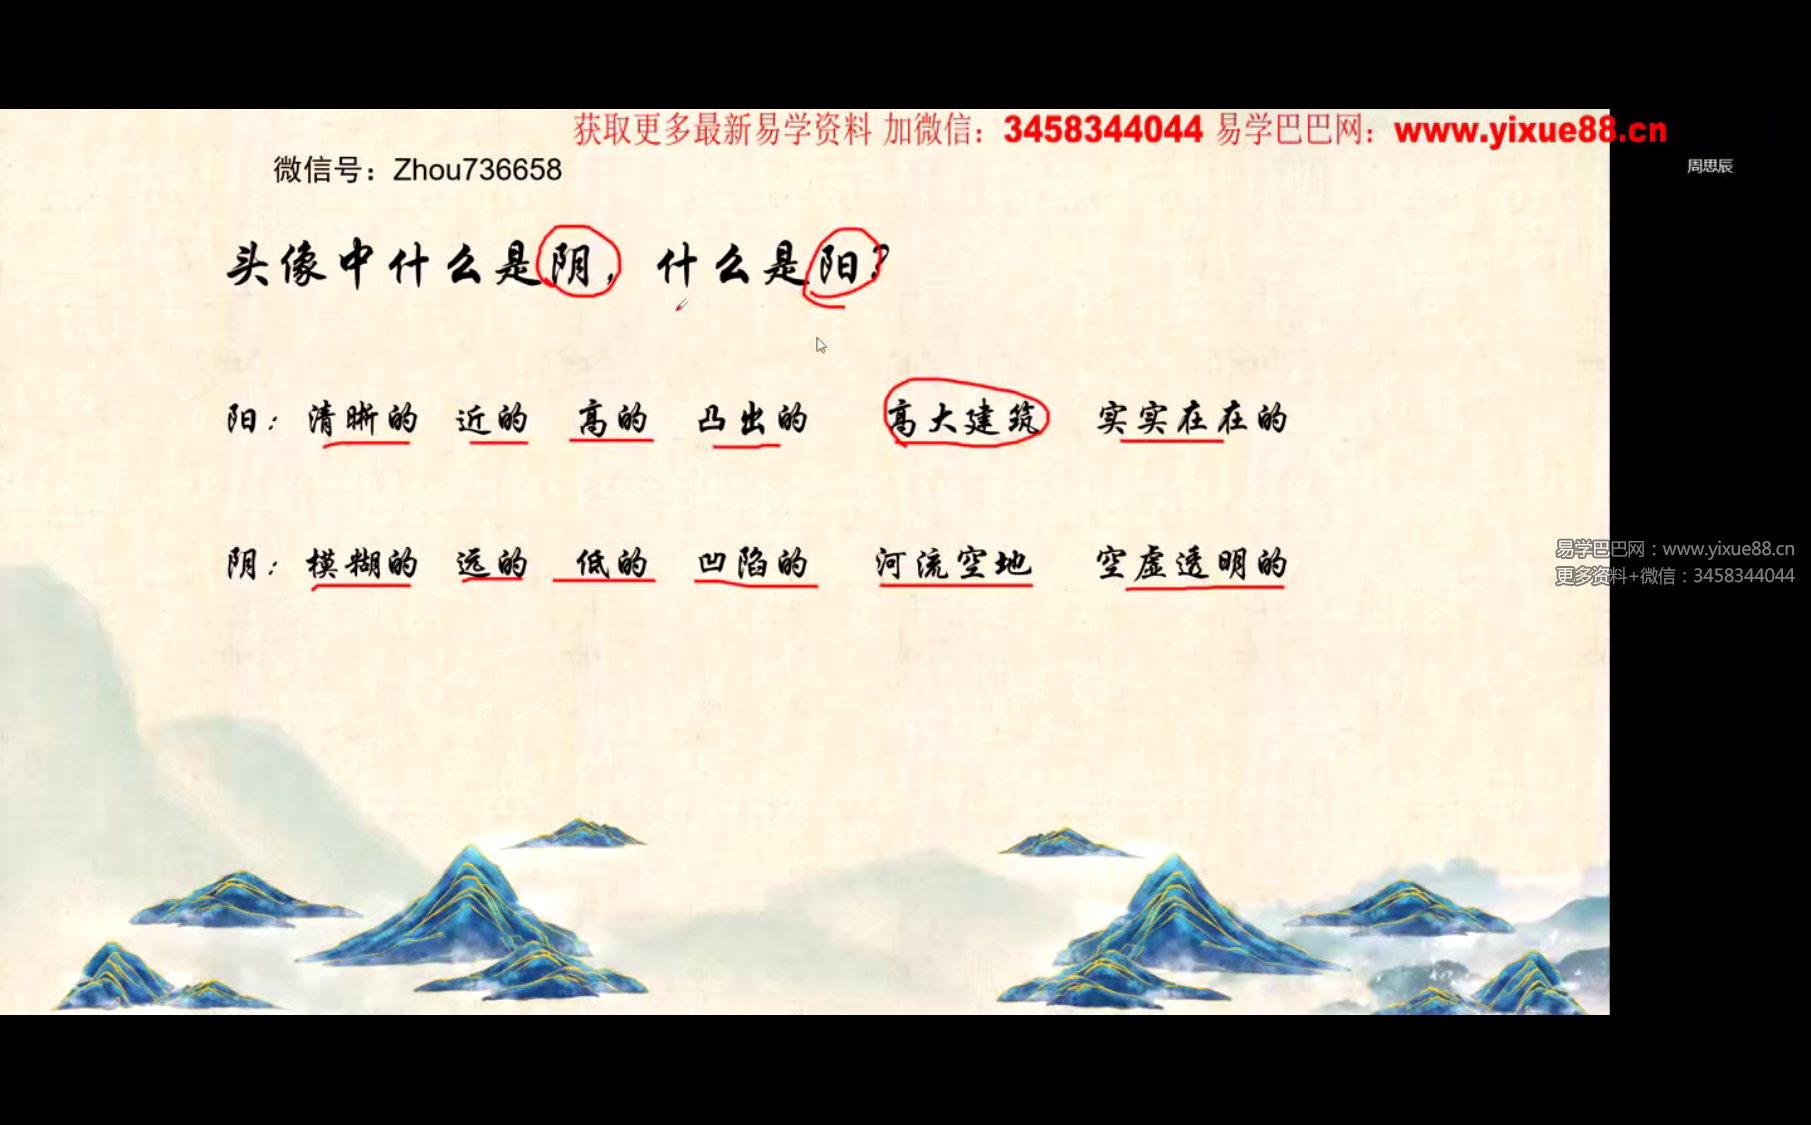 获取更多最新易学资料 加微信：3458344044 易学巴巴网：www.yixue88.cn
微信号：Zhou736658
周思辰
头像中什么是阴，什么是阳？
阳：清晰的 近的 高的 凸出的 高大建筑 实实在在的
阴：模糊的 远的 低的 凹陷的 河流空地 空虚透明的
易学巴巴网：www.yixue88.cn
更多资料+微信：3458344044